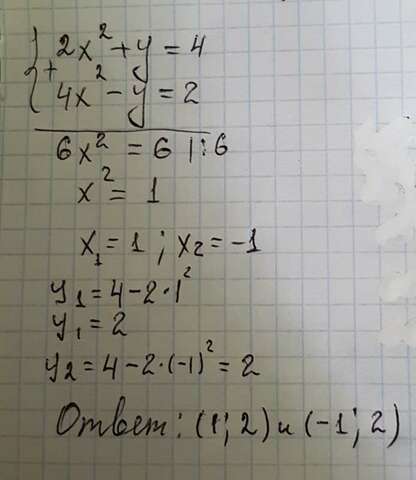 2x² + y = 4
+
4x² - y = 2
6x² = 6 |:6
x² = 1
x₁ = 1 ; x₂ = -1
y₁ = 4 - 2·1²
y₁ = 2
y₂ = 4 - 2·(-1)² = 2
Ответ: (1; 2) и (-1; 2)